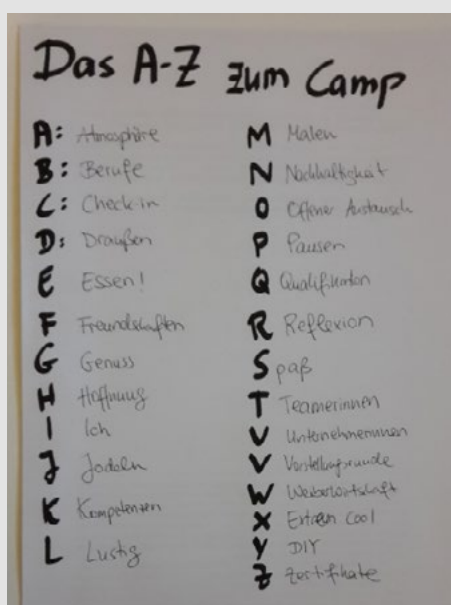 Das A-Z zum Camp
A: Atmosphäre
B: Berufe
C: Check-in
D: Draußen
E Essen!
F Freundschaften
G Genuss
H Hoffnung
I Ich
J Jodeln
K Kompetenzen
L Lustig
M Malen
N Nachhaltigkeit
O Offener Austausch
P Pausen
Q Qualifikation
R Reflexion
S Spaß
T Teamerinnen
U Unternehmerinnen
V Vorstellungsrunde
W Weiberwirtschaft
X Extrem cool
Y DIY
Z Zertifikate